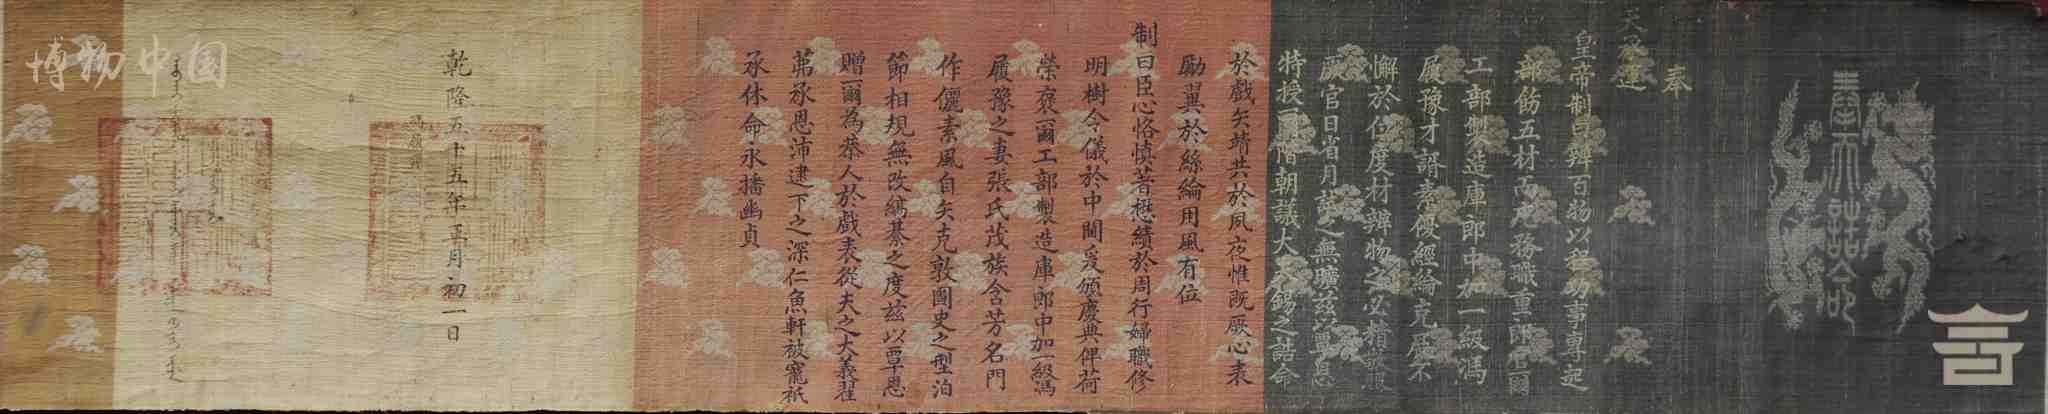 奉天誥命
奉
天承運
皇帝制曰辨百物以程功事專起
部飭五材而庀務職重郎官爾
工部製造庫郎中加一級馮
履豫才諝素優經綸克展不
懈於位度材辨物之必精
厥官日省月試之無曠茲以覃恩
特授爾階朝議大夫錫之誥命
於戲矢靖共於夙夜惟既厥心表
勵翼於絲綸用風有位
制曰臣心恪慎著懋績於周行婦職修
明樹令儀於中閫爰頒慶典俾荷
榮褒爾工部製造庫郎中加一級馮
履豫之妻張氏茂族含芳名門
作儷素風自矢克敦圖史之型泊
節相規無改縞綦之度茲以覃恩
贈爾為恭人於戲表從夫之大義翟
茀承恩沛逮下之深仁魚軒被寵祇
承休命永播幽貞
乾隆五十五年正月初一日
博物中国